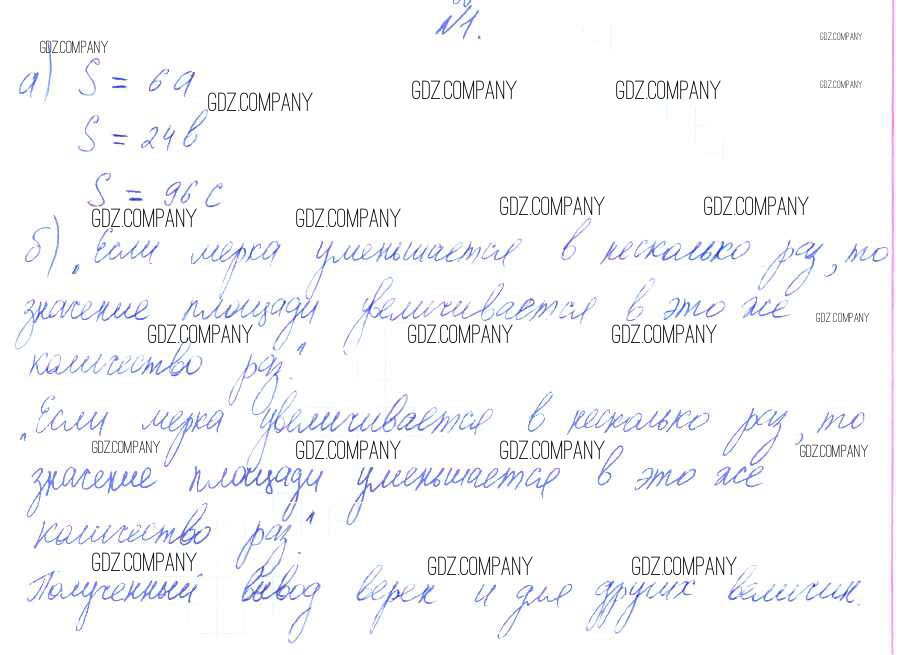 №1.
GDZ.COMPANY GDZ.COMPANY
а) S = 6a GDZ.COMPANY GDZ.COMPANY GDZ.COMPANY GDZ.COMPANY
S = 24b
S = 96c
GDZ.COMPANY GDZ.COMPANY GDZ.COMPANY GDZ.COMPANY
б) „Если мерка уменьшается в несколько раз, то
значение площади увеличивается в это же
GDZ.COMPANY GDZ.COMPANY GDZ.COMPANY GDZ.COMPANY
количество раз."
„Если мерка увеличивается в несколько раз, то
GDZ.COMPANY GDZ.COMPANY GDZ.COMPANY GDZ.COMPANY
значение площади уменьшается в это же
количество раз."
GDZ.COMPANY GDZ.COMPANY GDZ.COMPANY
Полученный вывод верен и для других величин.